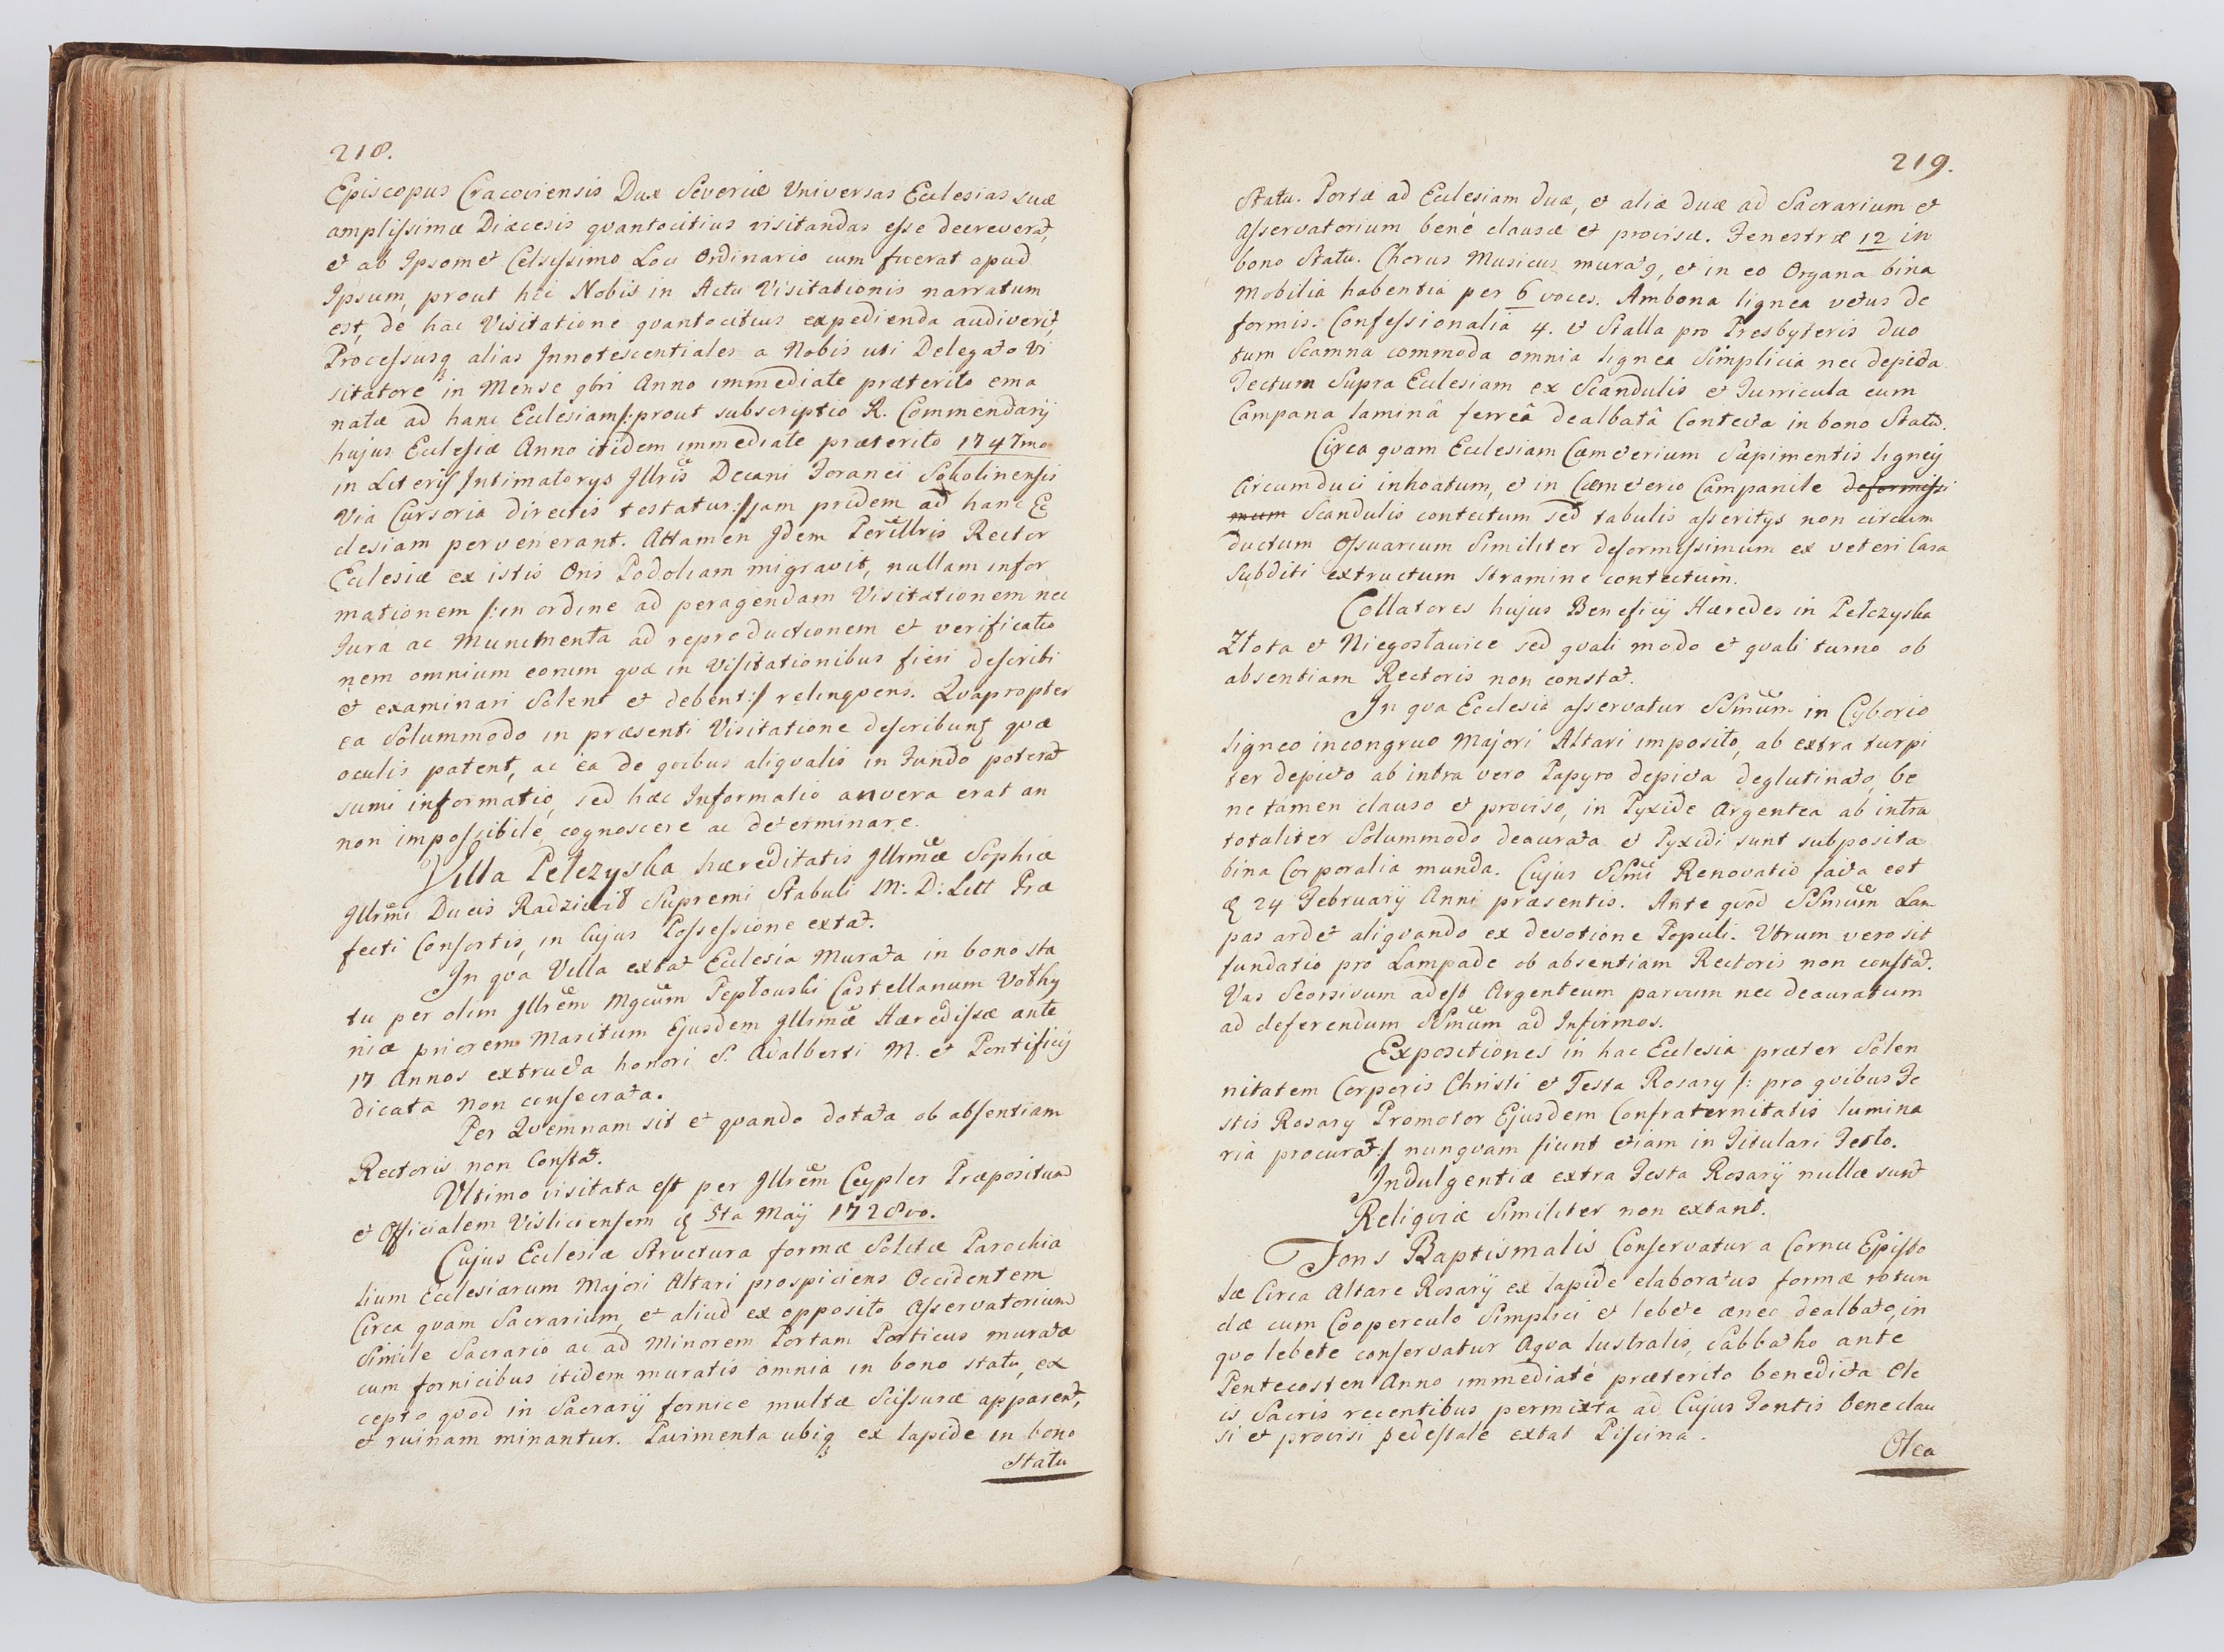 218.
Episcopus Cracoviensis Dux Severiæ Universas Ecclesias suæ
amplissimæ Diæcesis quantocitius visitandas esse decreverat,
et ab Ipsomet Celsissimo Loci Ordinario cum fuerat apud
Ipsum, prout hic Nobis in Actu Visitationis narratum
est, de hac Visitatione quantocitius expedienda audiverit,
Processusq alias Innotescentiales a Nobis uti Delegato Vi
sitatore in Mense 9bri Anno immediate præterito ema
natæ ad hanc Ecclesiam /: prout subscriptio R. Commendarij
hujus Ecclesiæ Anno itidem immediate præterito 1747mo
in Literis Intimatorys Illris Decani Foranei Sokolinensis
Via Cursoria directis testatur :/ jam pridem ad hanc Ec
clesiam pervenerant. Attamen Idem Perillris Rector
Ecclesiæ ex istis Oris Podoliam migravit, nullam infor
mationem /: in ordine ad peragendam Visitationem nec
Jura ac Munimenta ad reproductionem et verificatio
nem omnium eorum quæ in Visitationibus fieri describi
et examinari Solent et debent :/ relinquens. Quapropter
ea Solummodo in præsenti Visitatione describunt quæ
oculis patent, ac ea de quibus aliqualis in Fundo poterat
sumi informatio, sed hæc Informatio an vera erat an
non impossibile, cognoscere ac determinare.
Villa Pełczyska hæreditatis Illrmæ Sophiæ
Illrmi Ducis Radziwił Supremi Stabuli M: D: Litt Præ
fecti Consortis, in Cujus Possessione extat.
In qua Villa extat Ecclesia Murata in bono sta
tu per olim Illrem Mgcum Pepłouski Castellanum Vołhy
niæ priorem Maritum Ejusdem Illrmæ Hæredissæ ante
17 Annos extructa honori S. Adalberti M. et Pontificij
dicata non consecrata.
Per Quemnam sit et quando dotata ob absentiam
Rectoris non Constat.
Ultimo visitata est per Illrem Ceypler Præpositum
et Officialem Visliciensem 5ta Maij 1728vo.
Cujus Ecclesiæ Structura formæ Solitæ Parochia
lium Ecclesiarum Majori Altari prospiciens Occidentem
Circa quam Sacrarium, et aliud ex opposito Asservatorium
Simile Sacrario ac ad Minorem Portam Porticus muratæ
cum fornicibus itidem muratis omnia in bono statu, ex
cepto quod in Sacrarij fornice multæ Scissuræ apparent,
et ruinam minantur. Pavimenta ubiq ex lapide in bono
Statu
219.
Statu. Portæ ad Ecclesiam duæ, et aliæ duæ ad Sacrarium et
Asservatorium bene clausæ et provisæ. Fenestræ 12 in
bono Statu. Chorus Musicus murat9, et in eo Organa bina
Mobilia habentia per 6 voces. Ambona lignea vetus de
formis. Confessionalia 4. et Stalla pro Presbyteris duo
tum Scamna commoda omnia lignea Simplicia nec depicta.
Tectum Supra Ecclesiam ex Scandulis et Turricula cum
Campana laminâ ferreâ dealbatâ Contecta in bono Statu.
Circa quam Ecclesiam Cæmeterium Sæpimentis ligneij
Circumduci inhoatum, et in Cæmeterio Campanile deformissi
mum Scandulis contectum sed tabulis asseritys non circum
ductum Ossuarium Similiter deformissimum ex veteri Casa
Subditi extructum Stramine contectum.
Collatores hujus Beneficij Hæredes in Pełczyska
Złota et Niegosławice sed quali modo et quali turno ob
absentiam Rectoris non constat.
In qua Ecclesia asservatur SSmum in Cyborio
ligneo incongruo Majori Altari imposito, ab extra turpi
ter depicto ab intra vero Papyro depicta deglutinato, be
ne tamen clauso et proviso, in Pyxide Argentea ab intra
totaliter Solummodo deaurata et Pyxidi sunt subposita
bina Corporalia munda. Cujus SSmi Renovatio facta est
24 February Anni præsentis. Ante quod SSmum Lam
pas ardet aliquando ex devotione Populi. Utrum vero sit
fundatio pro Lampade ob absentiam Rectoris non constat.
Vas Seorsivum adest Argenteum parvum nec deauratum
ad deferendum SSmum ad Infirmos.
Expositiones in hac Ecclesia præter Solen
nitatem Corporis Christi et Festa Rosary /: pro quibus Fe
stis Rosary Promotor Ejusdem Confraternitatis lumina
ria procurat :/ nunquam fiunt etiam in Titulari Festo.
Indulgentiæ extra Festa Rosarij nullæ sunt
Reliquiæ Similiter non extant.
Fons Baptismalis Conservatur a Cornu Episto
læ Circa Altare Rosarij ex lapide elaboratus formæ rotun
dæ cum Cooperculo Simplici et lebete æneo dealbato, in
quo lebete conservatur Aqua lustralis, Sabbatho ante
Pentecosten Anno immediaté præterito benedicta Ole
is Sacris recentibus permixta ad Cujus Fontis bene clau
si et provisi pedestale extat Piscina.
Olea